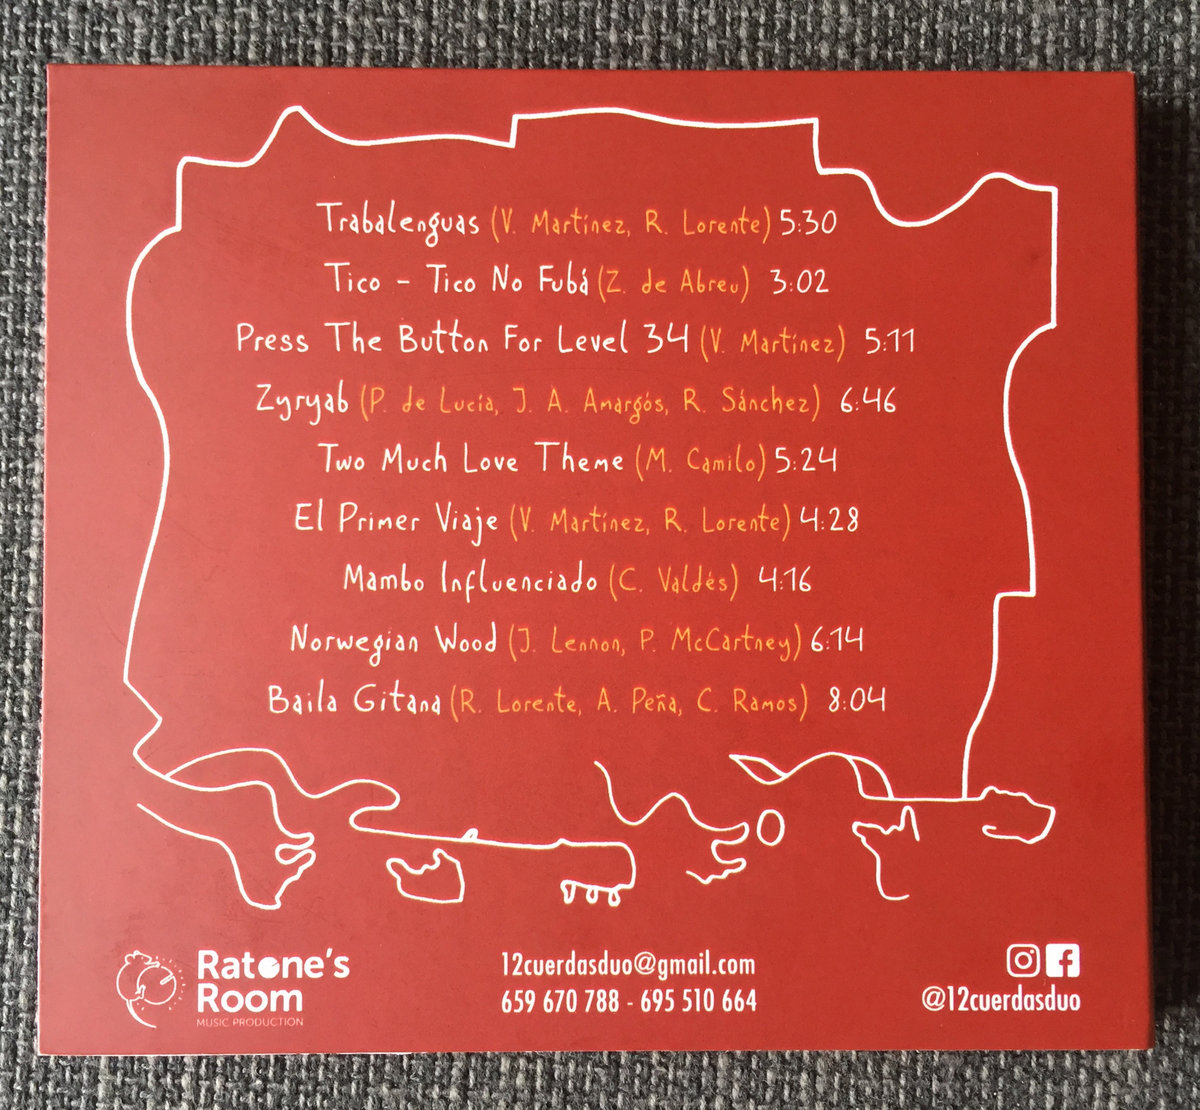 Trabalenguas (V. Martínez, R. Lorente) 5:30
Tico - Tico No Fubá (Z. de Abreu) 3:02
Press The Button For Level 34 (V. Martínez) 5:11
Zyryab (P. de Lucía, J. A. Amargós, R. Sánchez) 6:46
Two Much Love Theme (M. Camilo) 5:24
El Primer Viaje (V. Martínez, R. Lorente) 4:28
Mambo Influenciado (C. Valdés) 4:16
Norwegian Wood (J. Lennon, P. McCartney) 6:14
Baila Gitana (R. Lorente, A. Peña, C. Ramos) 8:04
Ratone's
Room
MUSIC PRODUCTION
12cuerdasduo@gmail.com
659 670 788 - 695 510 664
@12cuerdasduo